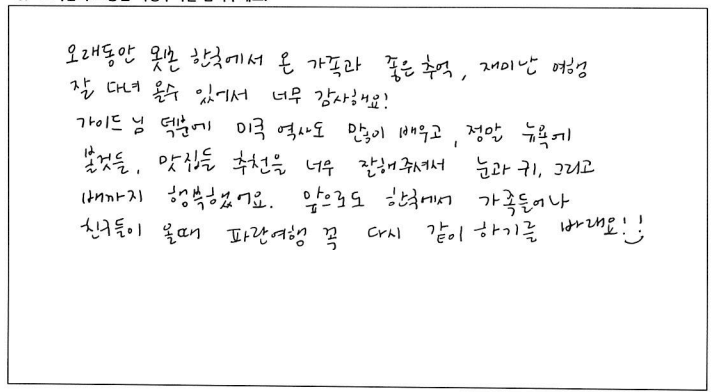 오래동안 못본 한국에서 온 가족과 좋은 추억, 재미난 여행
잘 다녀 올수 있어서 너무 감사해요!
가이드 님 덕분에 미국 역사도 많이 배우고, 정말 뉴욕에
볼것들, 맛집들 추천을 너무 잘해주셔서 눈과 귀, 그리고
배까지 행복했어요. 앞으로도 한국에서 가족들이나
친구들이 올때 파란여행 꼭 다시 같이 하기를 바래요!!